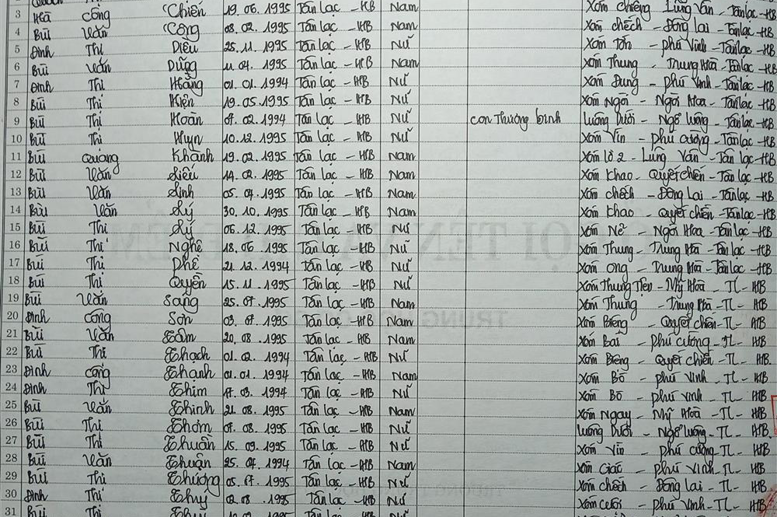 3 Hà Công Chiến 19.06.1995 Tân Lạc - HB Nam Xóm Chiềng Lũng Vân - Tân Lạc - HB
4 Bùi Văn Công 08.02.1995 Tân Lạc - HB Nam Xóm Chếch - Đông Lai - Tân Lạc - HB
5 Đinh Thị Diều 25.11.1995 Tân Lạc - HB Nữ Xóm Tớn - Phú Vinh - Tân Lạc - HB
6 Bùi Văn Dũng 11.04.1995 Tân Lạc - HB Nam Xóm Thung - Trung Hòa - Tân Lạc - HB
7 Đinh Thị Hoàng 01.01.1994 Tân Lạc - HB Nữ Xóm Dung - Phú Vinh - Tân Lạc - HB
8 Bùi Thị Hiện 19.05.1995 Tân Lạc - HB Nữ Xóm Ngòi - Ngòi Hoa - Tân Lạc - HB
9 Bùi Thị Hoàn 07.02.1994 Tân Lạc - HB Nữ con thương binh Luông Dưới - Ngổ Luông - Tân Lạc - HB
10 Bùi Thị 10.12.1995 Tân Lạc - HB Nữ Xóm Vin - Phú Cường - Tân Lạc - HB
11 Bùi Quang Khánh 19.02.1995 Tân Lạc - HB Nam Xóm Lở 2 - Lũng Vân - Tân Lạc - HB
12 Bùi Văn Liễu 14.02.1995 Tân Lạc - HB Nam Xóm Khao - Quyết Chiến - Tân Lạc - HB
13 Bùi Văn Linh 05.07.1995 Tân Lạc - HB Nam Xóm Chếch - Đông Lai - Tân Lạc - HB
14 Bùi Văn Lý 30.10.1995 Tân Lạc - HB Nam Xóm Khao - Quyết Chiến - Tân Lạc - HB
15 Bùi Thị Lý 06.12.1995 Tân Lạc - HB Nữ Xóm Nẻ - Ngòi Hoa - Tân Lạc - HB
16 Bùi Thị Nghê 18.06.1995 Tân Lạc - HB Nữ Xóm Thung - Trung Hòa - Tân Lạc - HB
17 Bùi Thị Phế 21.12.1994 Tân Lạc - HB Nữ Xóm Ong - Trung Hòa - Tân Lạc - HB
18 Bùi Thị Quyền 15.11.1995 Tân Lạc - HB Nữ Xóm Thung Tiến - Mỹ Hòa - TL - HB
19 Bùi Văn Sang 25.07.1995 Tân Lạc - HB Nam Xóm Thung - Trung Hòa - TL - HB
20 Đinh Công Sơn 03.07.1995 Tân Lạc - HB Nam Xóm Biêng - Quyết Chiến - TL - HB
21 Bùi Văn Tâm 20.08.1995 Tân Lạc - HB Nam Xóm Bai - Phú Cường - TL - HB
22 Bùi Thị Thạch 01.02.1994 Tân Lạc - HB Nữ Xóm Biêng - Quyết Chiến - TL - HB
23 Đinh Công Thanh 01.01.1994 Tân Lạc - HB Nam Xóm Bò - Phú Vinh - TL - HB
24 Đinh Thị Thim 17.03.1994 Tân Lạc - HB Nữ Xóm Bò - Phú Vinh - TL - HB
25 Bùi Văn Thinh 21.08.1995 Tân Lạc - HB Nam Xóm Ngay - Mỹ Hòa - TL - HB
26 Bùi Thị Thơm 07.08.1995 Tân Lạc - HB Nữ Luông Dưới - Ngổ Luông - TL - HB
27 Bùi Thị Thuân 15.09.1995 Tân Lạc - HB Nữ Xóm Vin - Phú Cường - TL - HB
28 Bùi Văn Thuận 25.04.1994 Tân Lạc - HB Nam Xóm Giác - Phú Vinh - TL - HB
29 Bùi Thị Thương 05.07.1995 Tân Lạc - HB Nữ Xóm Chếch - Đông Lai - TL - HB
30 Đinh Thị Thuỷ 02.08.1995 Tân Lạc - HB Nữ Xóm - Phú Vinh - TL - HB
31 Bùi Thị 1995 Tân Lạc - HB Nữ